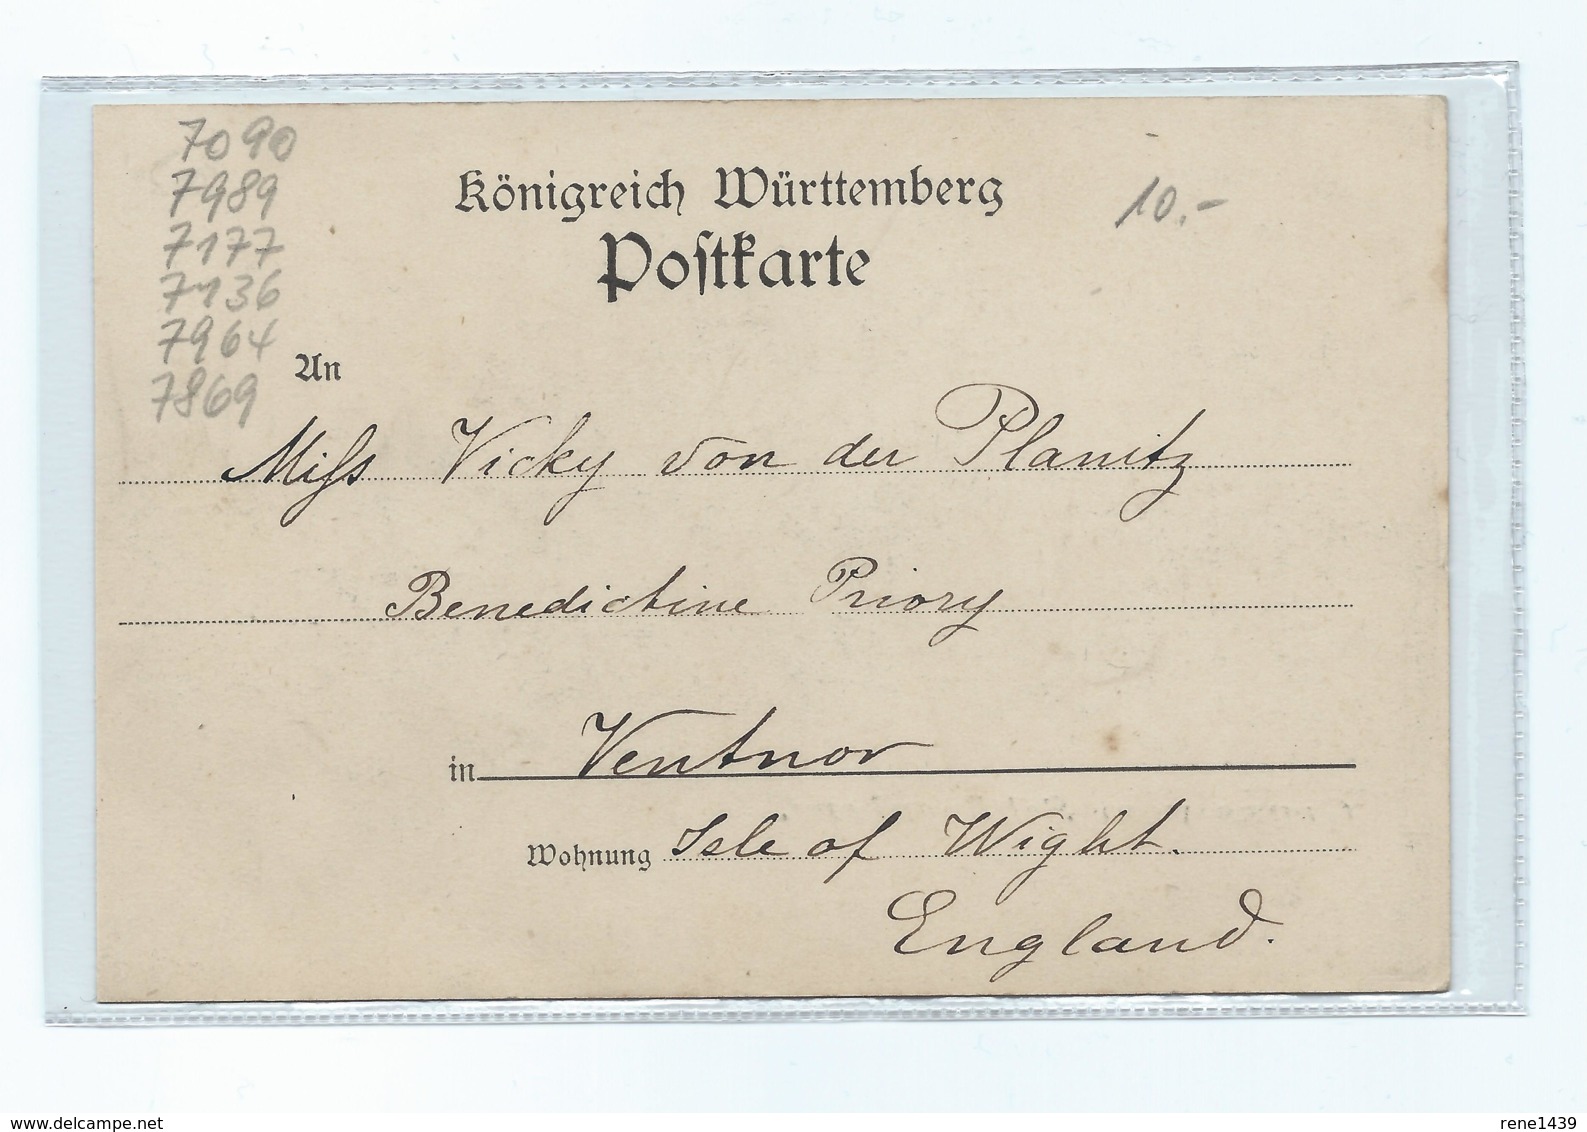 7090
7989
7177
7136
7964
7869
Königreich Württemberg
10.-
Poſtkarte
An
Miſs Vicky von der Planitz
Benedictine Priory
in Ventnor
Wohnung Isle of Wight.
England.
www.delcampe.net
rene1439